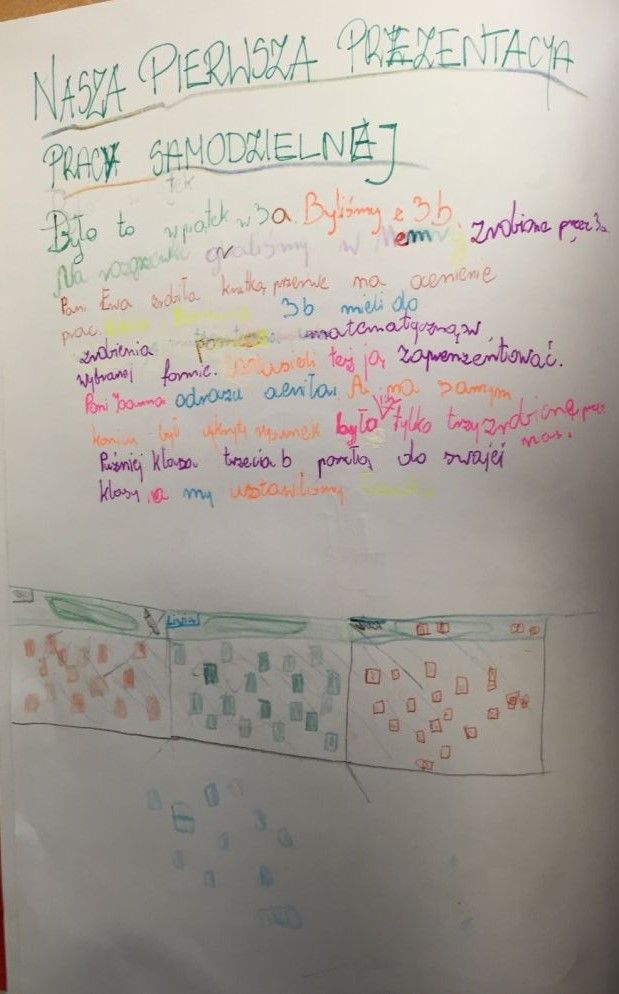 NASZA PIERWSZA PREZENTACJA
PRACY SAMODZIELNEJ
Było to w piątek w 3a. Byliśmy z 3b.
Na rozgrzewkę graliśmy w Memory zrobione przez 3a.
Pani Ewa zrobiła krutką przerwe na ocenienie
prac. 3b mieli do
zrobienia matematyczną w
wybranej formie. Musieli też ją zaprezentiować.
Pani Joanna odrazu oceniła. A na samym
koniu był ukryty rysunek było tylko trzy zrobione przez
nas.
Puźniej klasa trzecia b poszła do swojej
klasy, a my ustawiliśmy